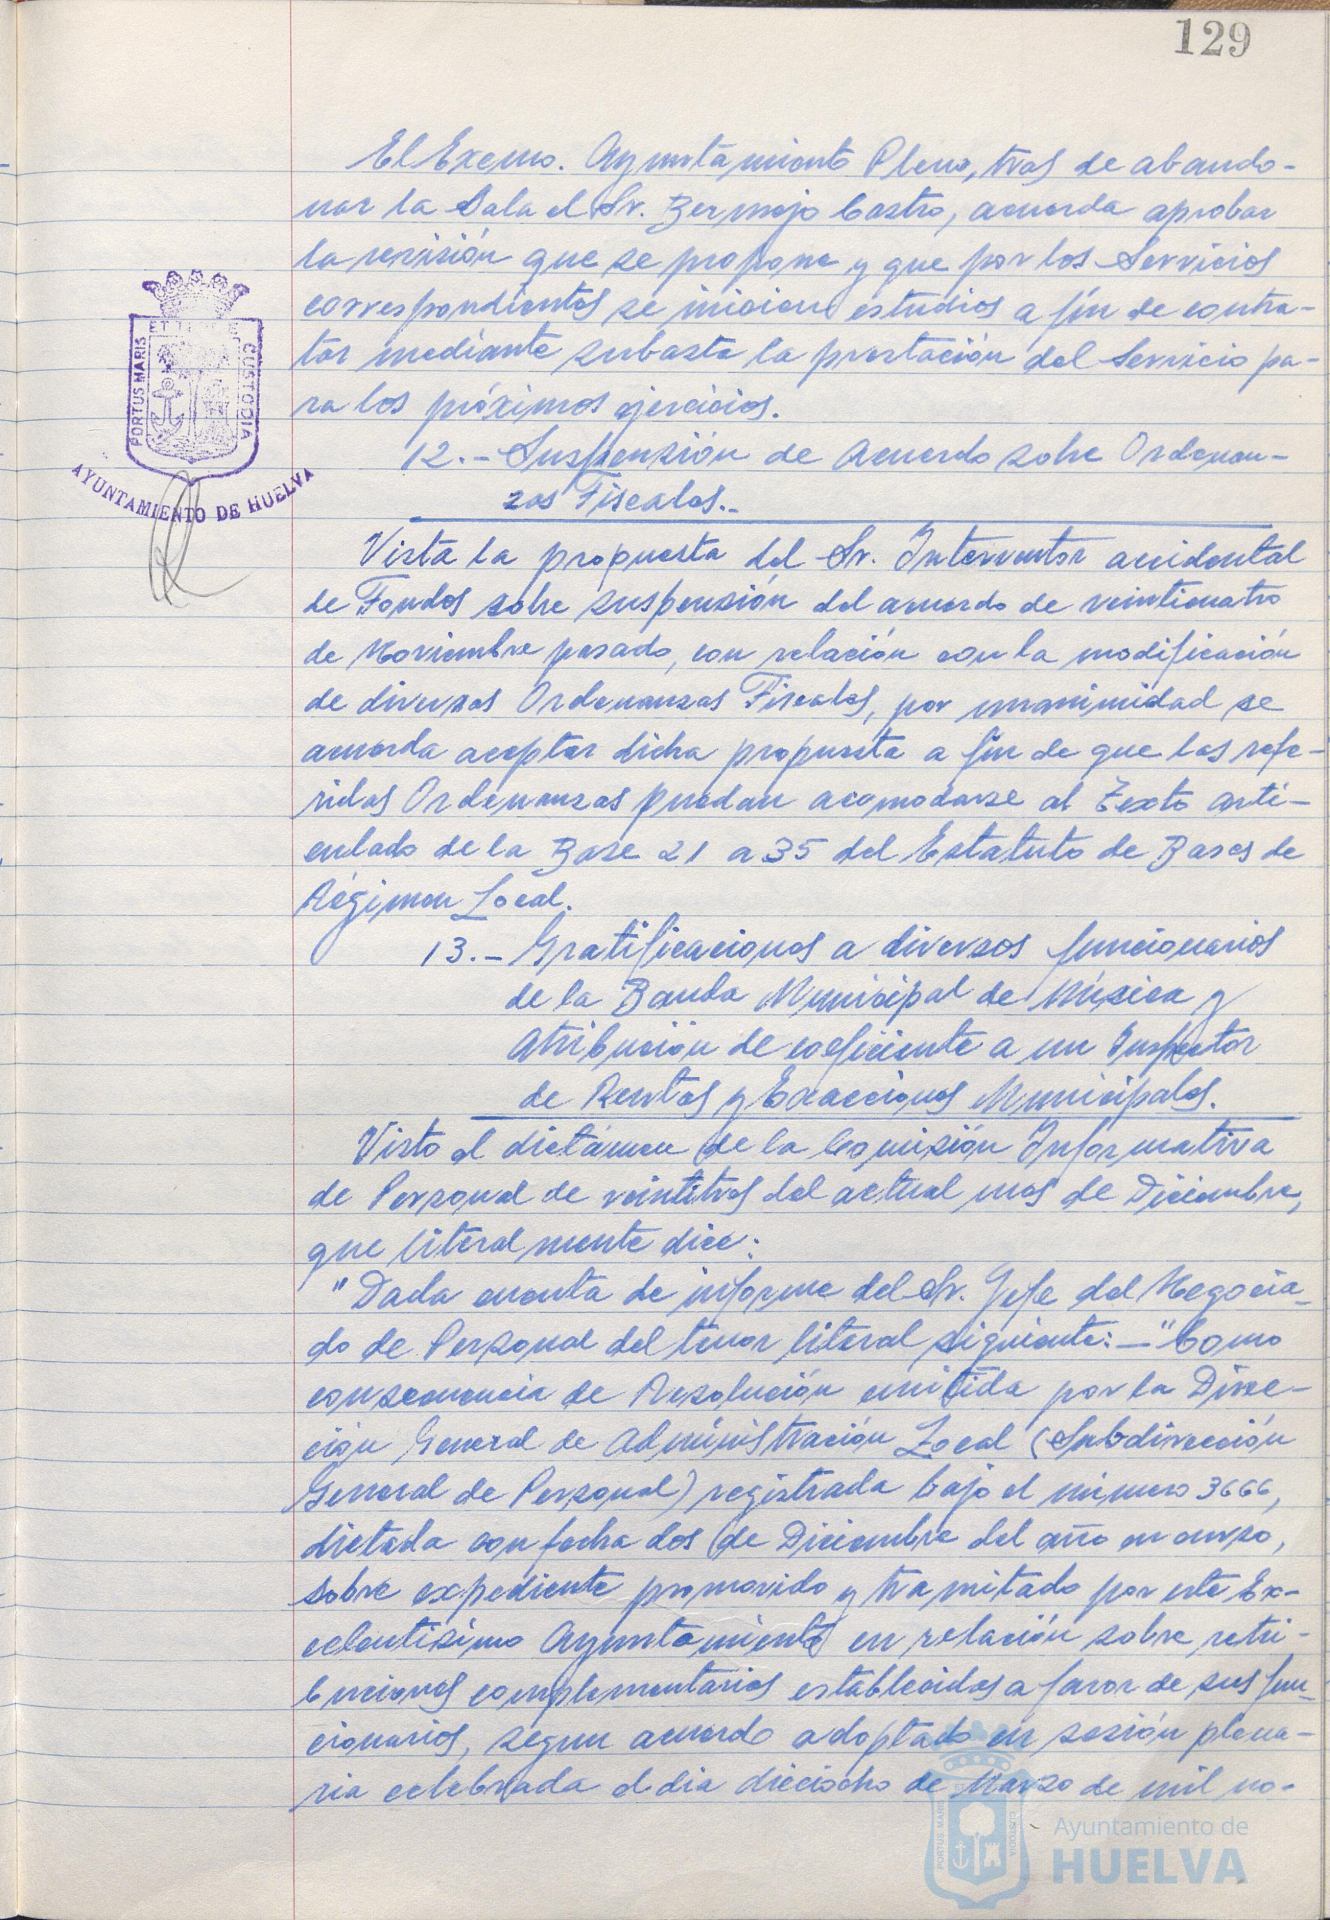 129
El Excmo. Ayuntamiento Pleno, tras de abando-
nar la Sala el Sr. Bermejo Castro, acuerda aprobar
la revisión que se propone y que por los Servicios
correspondientes se inicien estudios a fin de contra-
tar mediante subasta la prestación del Servicio pa-
ra los próximos ejercicios.
12.- Suspensión de Acuerdo sobre Ordenan-
zas Fiscales.-
Vista la propuesta del Sr. Interventor accidental
de Fondos sobre suspensión del acuerdo de veinticuatro
de Noviembre pasado, con relación con la modificación
de diversas Ordenanzas Fiscales, por unanimidad se
acuerda aceptar dicha propuesta a fin de que las refe-
ridas Ordenanzas puedan acomodarse al Texto arti-
culado de la Base 21 a 35 del Estatuto de Bases de
Régimen Local.
13.- Gratificaciones a diversos funcionarios
de la Banda Municipal de Música y
Atribución de coeficiente a un Inspector
de Rentas y Exacciones Municipales.
Visto el dictámen de la Comisión Informativa
de Personal de veintitres del actual mes de Diciembre,
que literalmente dice:
"Dada cuenta de informe del Sr. Jefe del Negocia-
do de Personal del tenor literal siguiente: - "Como
consecuencia de Resolución emitida por la Direc-
ción General de Administración Local (Subdirección
General de Personal) registrada bajo el número 3666,
dictada con fecha dos de Diciembre del año en curso,
sobre expediente promovido y tramitado por este Ex-
celentisimo Ayuntamiento en relación sobre retri-
buciones complementarias establecidas a favor de sus fun-
cionarios, segun acuerdo adoptado en sesión plena-
ria celebrada el dia dieciocho de Marzo de mil no-
PORTUS MARIS
ET TERRE
CUSTODIA
AYUNTAMIENTO DE HUELVA
PORTUS MARIS
CUSTODIA
Ayuntamiento de
HUELVA